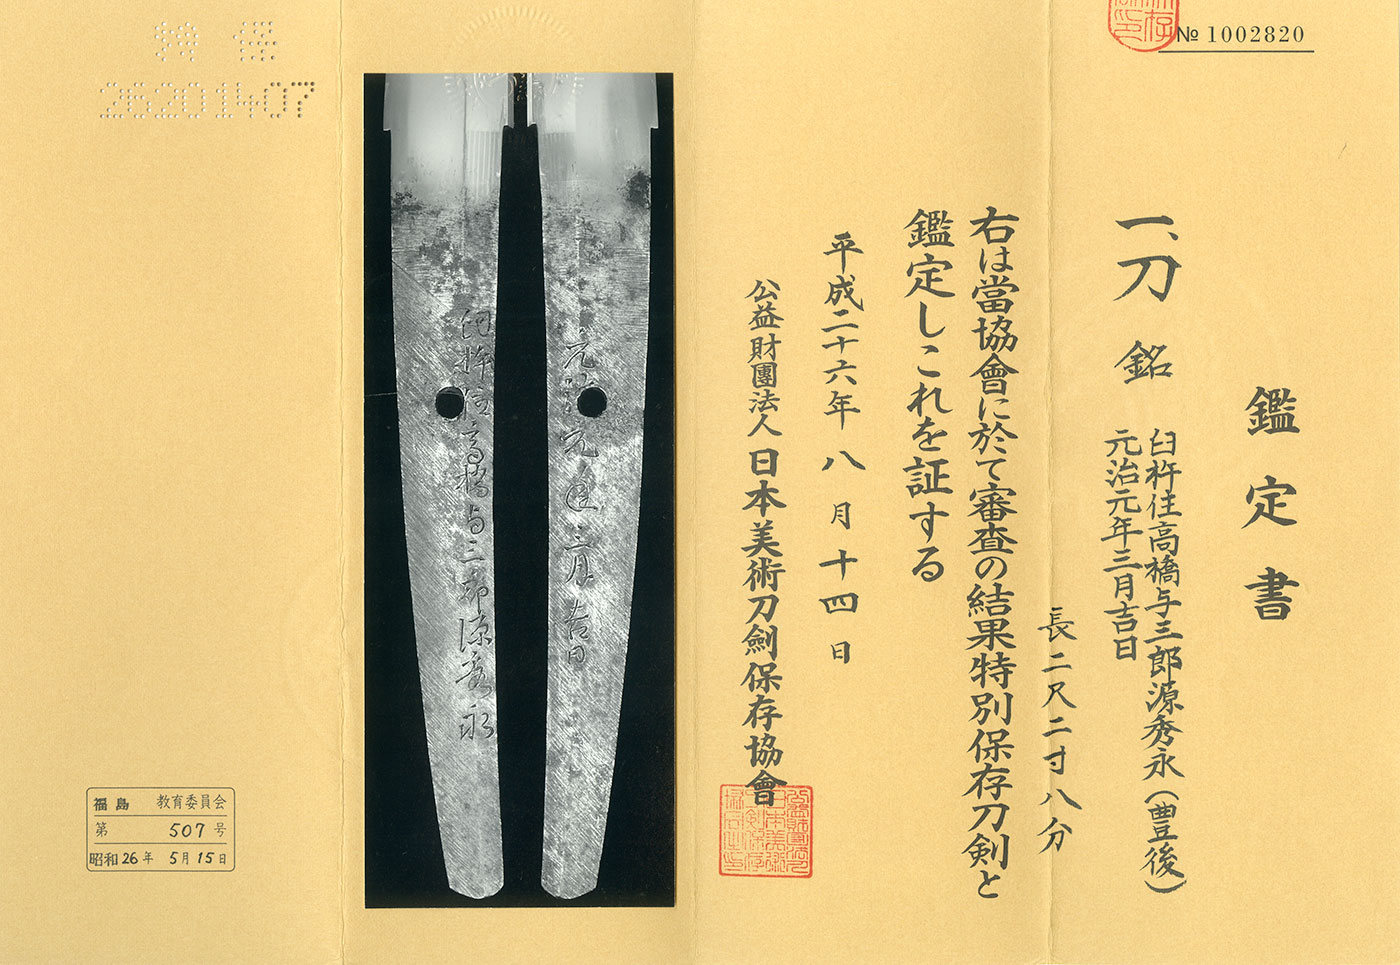 № 1002820
鑑定書
一、刀 銘 臼杵住高橋与三郎源秀永(豊後)
元治元年三月吉日
長二尺二寸八分
右は當協會に於て審査の結果特別保存刀剣と
鑑定しこれを証する
平成二十六年八月十四日
公益財團法人日本美術刀劍保存協會
元治元年三月吉日
臼杵住高橋与三郎源秀永
26201407
福島 教育委員会
第 507 号
昭和26年 5月15日